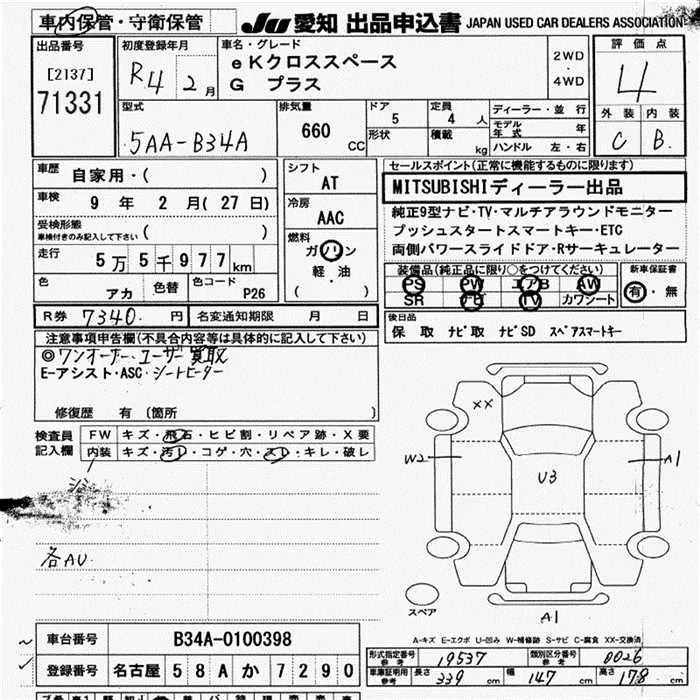 車内保管・守衛保管
JU 愛知 出品申込書 JAPAN USED CAR DEALERS ASSOCIATION
出品番号
[2137]
71331
初度登録年月
R4 2月
車名・グレード
eKクロススペース
G プラス
2WD
・
4WD
評価点
4
外装 内装
C B.
型式
5AA-B34A
排気量
660 CC
ドア
5
形状
定員
4 人
積載
kg
ディーラー・並行
モデル年式 年
ハンドル 左・右
車歴
自家用・( )
車検
9 年 2 月 (27 日)
受検形態
車検付きのみ記入して下さい ( )
走行
5万5千977km
色
アカ
色替
色コード
P26
シフト
AT
冷房
AAC
燃料
ガソリン
軽・油
( )
セールスポイント(正常に機能するものに限ります)
MITSUBISHIディーラー出品
純正9型ナビ・TV・マルチアラウンドモニター
プッシュスタートスマートキー・ETC
両側パワースライドドア・Rサーキュレーター
装備品(純正品に限り○をつけてください)
PS PW エアB AW
SR ナビ TV カワシート
新車保証書
有・無
R券 7340. 円
名変通知期限 月 日
後日品
保 取 ナビ取 ナビSD スペアスマートキー
注意事項申告欄(不具合内容等は具体的に記入して下さい)
◎ワンオーナー・ユーザー買取
E-アシスト・ASC・シートヒーター
修復歴 有 (箇所 )
検査員
記入欄
FW キズ・飛石・ヒビ割・リペア跡・X要
内装 キズ・汚レ・コゲ・穴・スレ・キレ・破レ
シミ
各AU
XX
W2
U3
A1
スペア
A1
A-キズ E-エクボ U-凹み W-補修跡 S-サビ C-腐食 XX-交換済
車台番号 B34A-0100398
登録番号 名古屋 58Aか7290
形式指定番号
参考
19537
類別区分番号
参考
0026
車庫証明用
参考
長さ 339 cm
幅 147 cm
高さ 178 cm